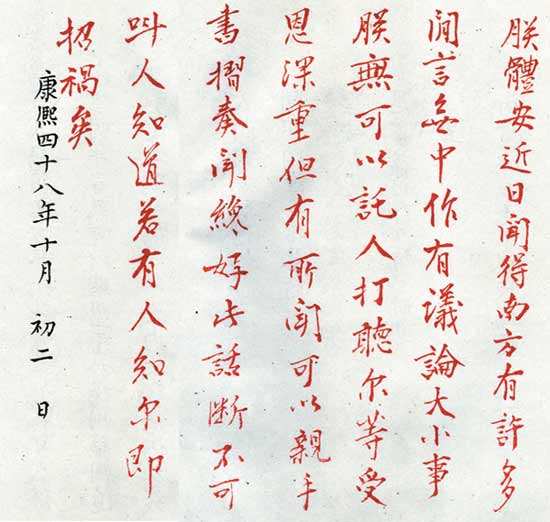 朕體安近日聞得南方有許多
閒言無中作有議論大小事
朕無可以託人打聽尔等受
恩深重但有所聞可以親手
書摺奏聞纔好此話断不可
叫人知道若有人知尔即
招禍矣
康熙四十八年十月 初二 日